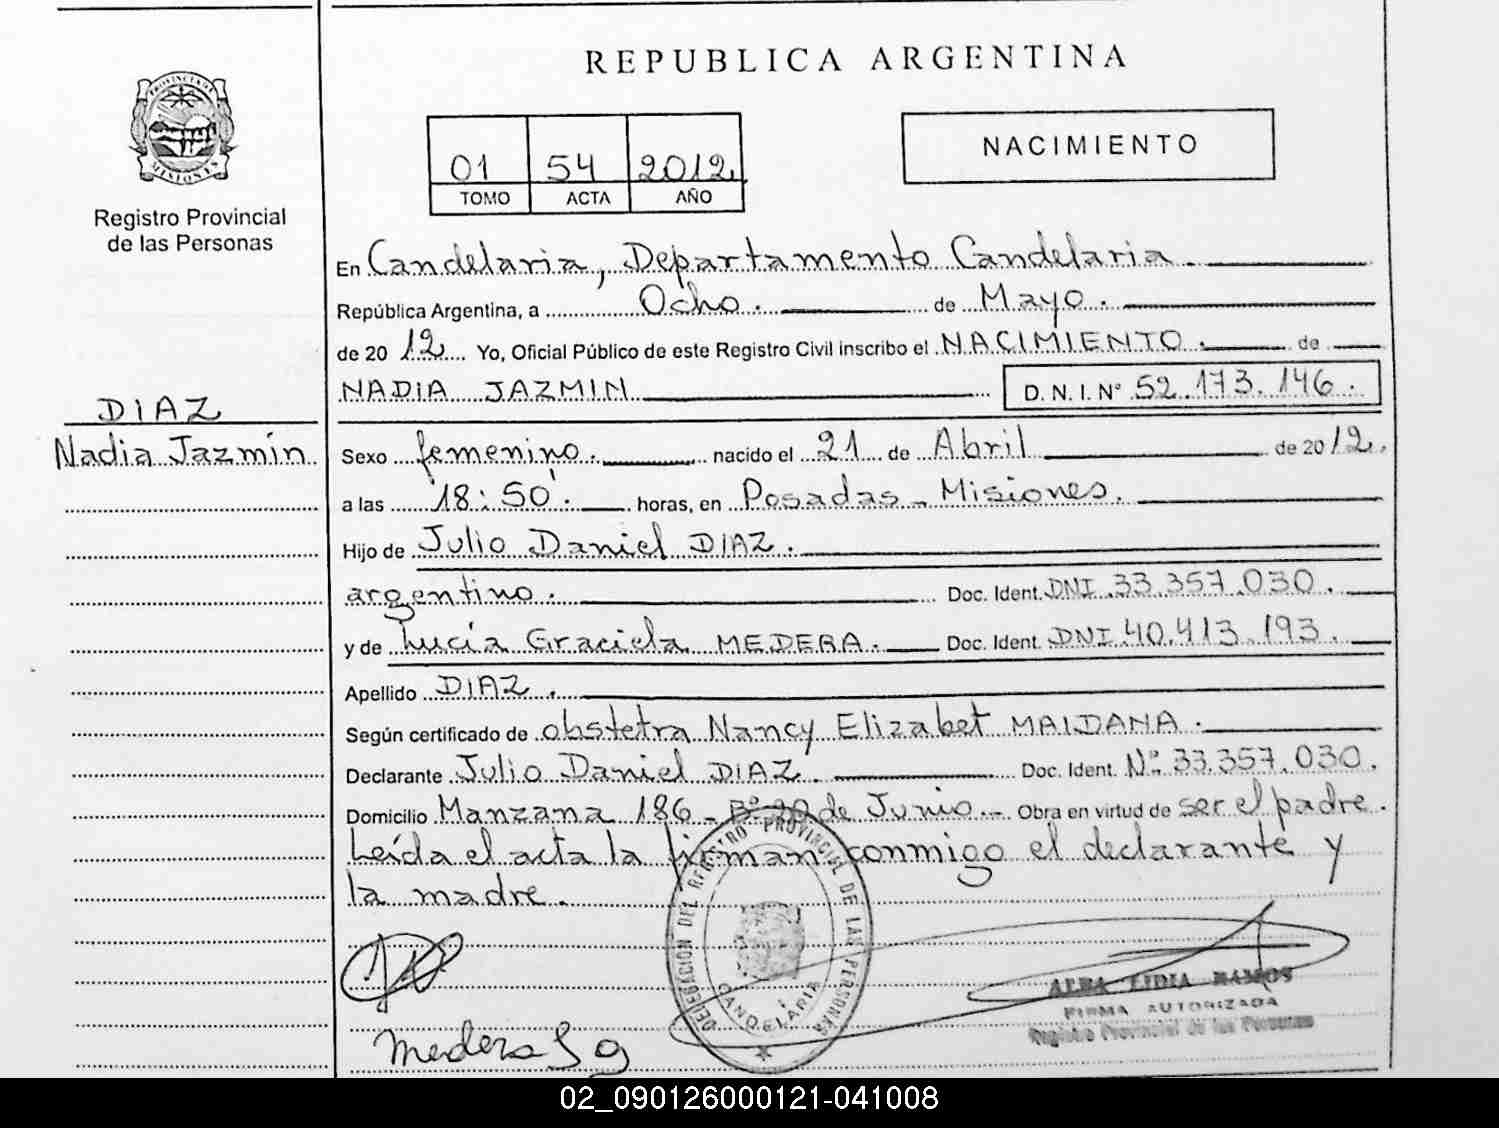 REPUBLICA ARGENTINA
PROVINCIA DE
MISIONES
Registro Provincial
de las Personas
01 54 2012
TOMO ACTA AÑO
NACIMIENTO
En Candelaria, Departamento Candelaria.
República Argentina, a Ocho. de Mayo.
de 2012 Yo, Oficial Público de este Registro Civil inscribo el NACIMIENTO. de
NADIA JAZMIN D. N. I. N° 52.173.146.
DIAZ
Nadia Jazmín
Sexo femenino. nacido el 21 de Abril de 2012.
a las 18:50. horas, en Posadas - Misiones.
Hijo de Julio Daniel DIAZ.
argentino. Doc. Ident. DNI 33.357.030.
y de Lucía Graciela MEDERA. Doc. Ident. DNI 40.413.193.
Apellido DIAZ.
Según certificado de obstetra Nancy Elizabet MAIDANA.
Declarante Julio Daniel DIAZ. Doc. Ident. N° 33.357.030.
Domicilio Manzana 186 - B° 20 de Junio.- Obra en virtud de ser el padre.
Leída el acta la firman conmigo el declarante y
la madre.
DELEGACION DEL REGISTRO PROVINCIAL DE LAS PERSONAS
CANDELARIA
ALBA LIDIA RAMOS
FIRMA AUTORIZADA
Registro Provincial de las Personas
Medera
02_090126000121-041008